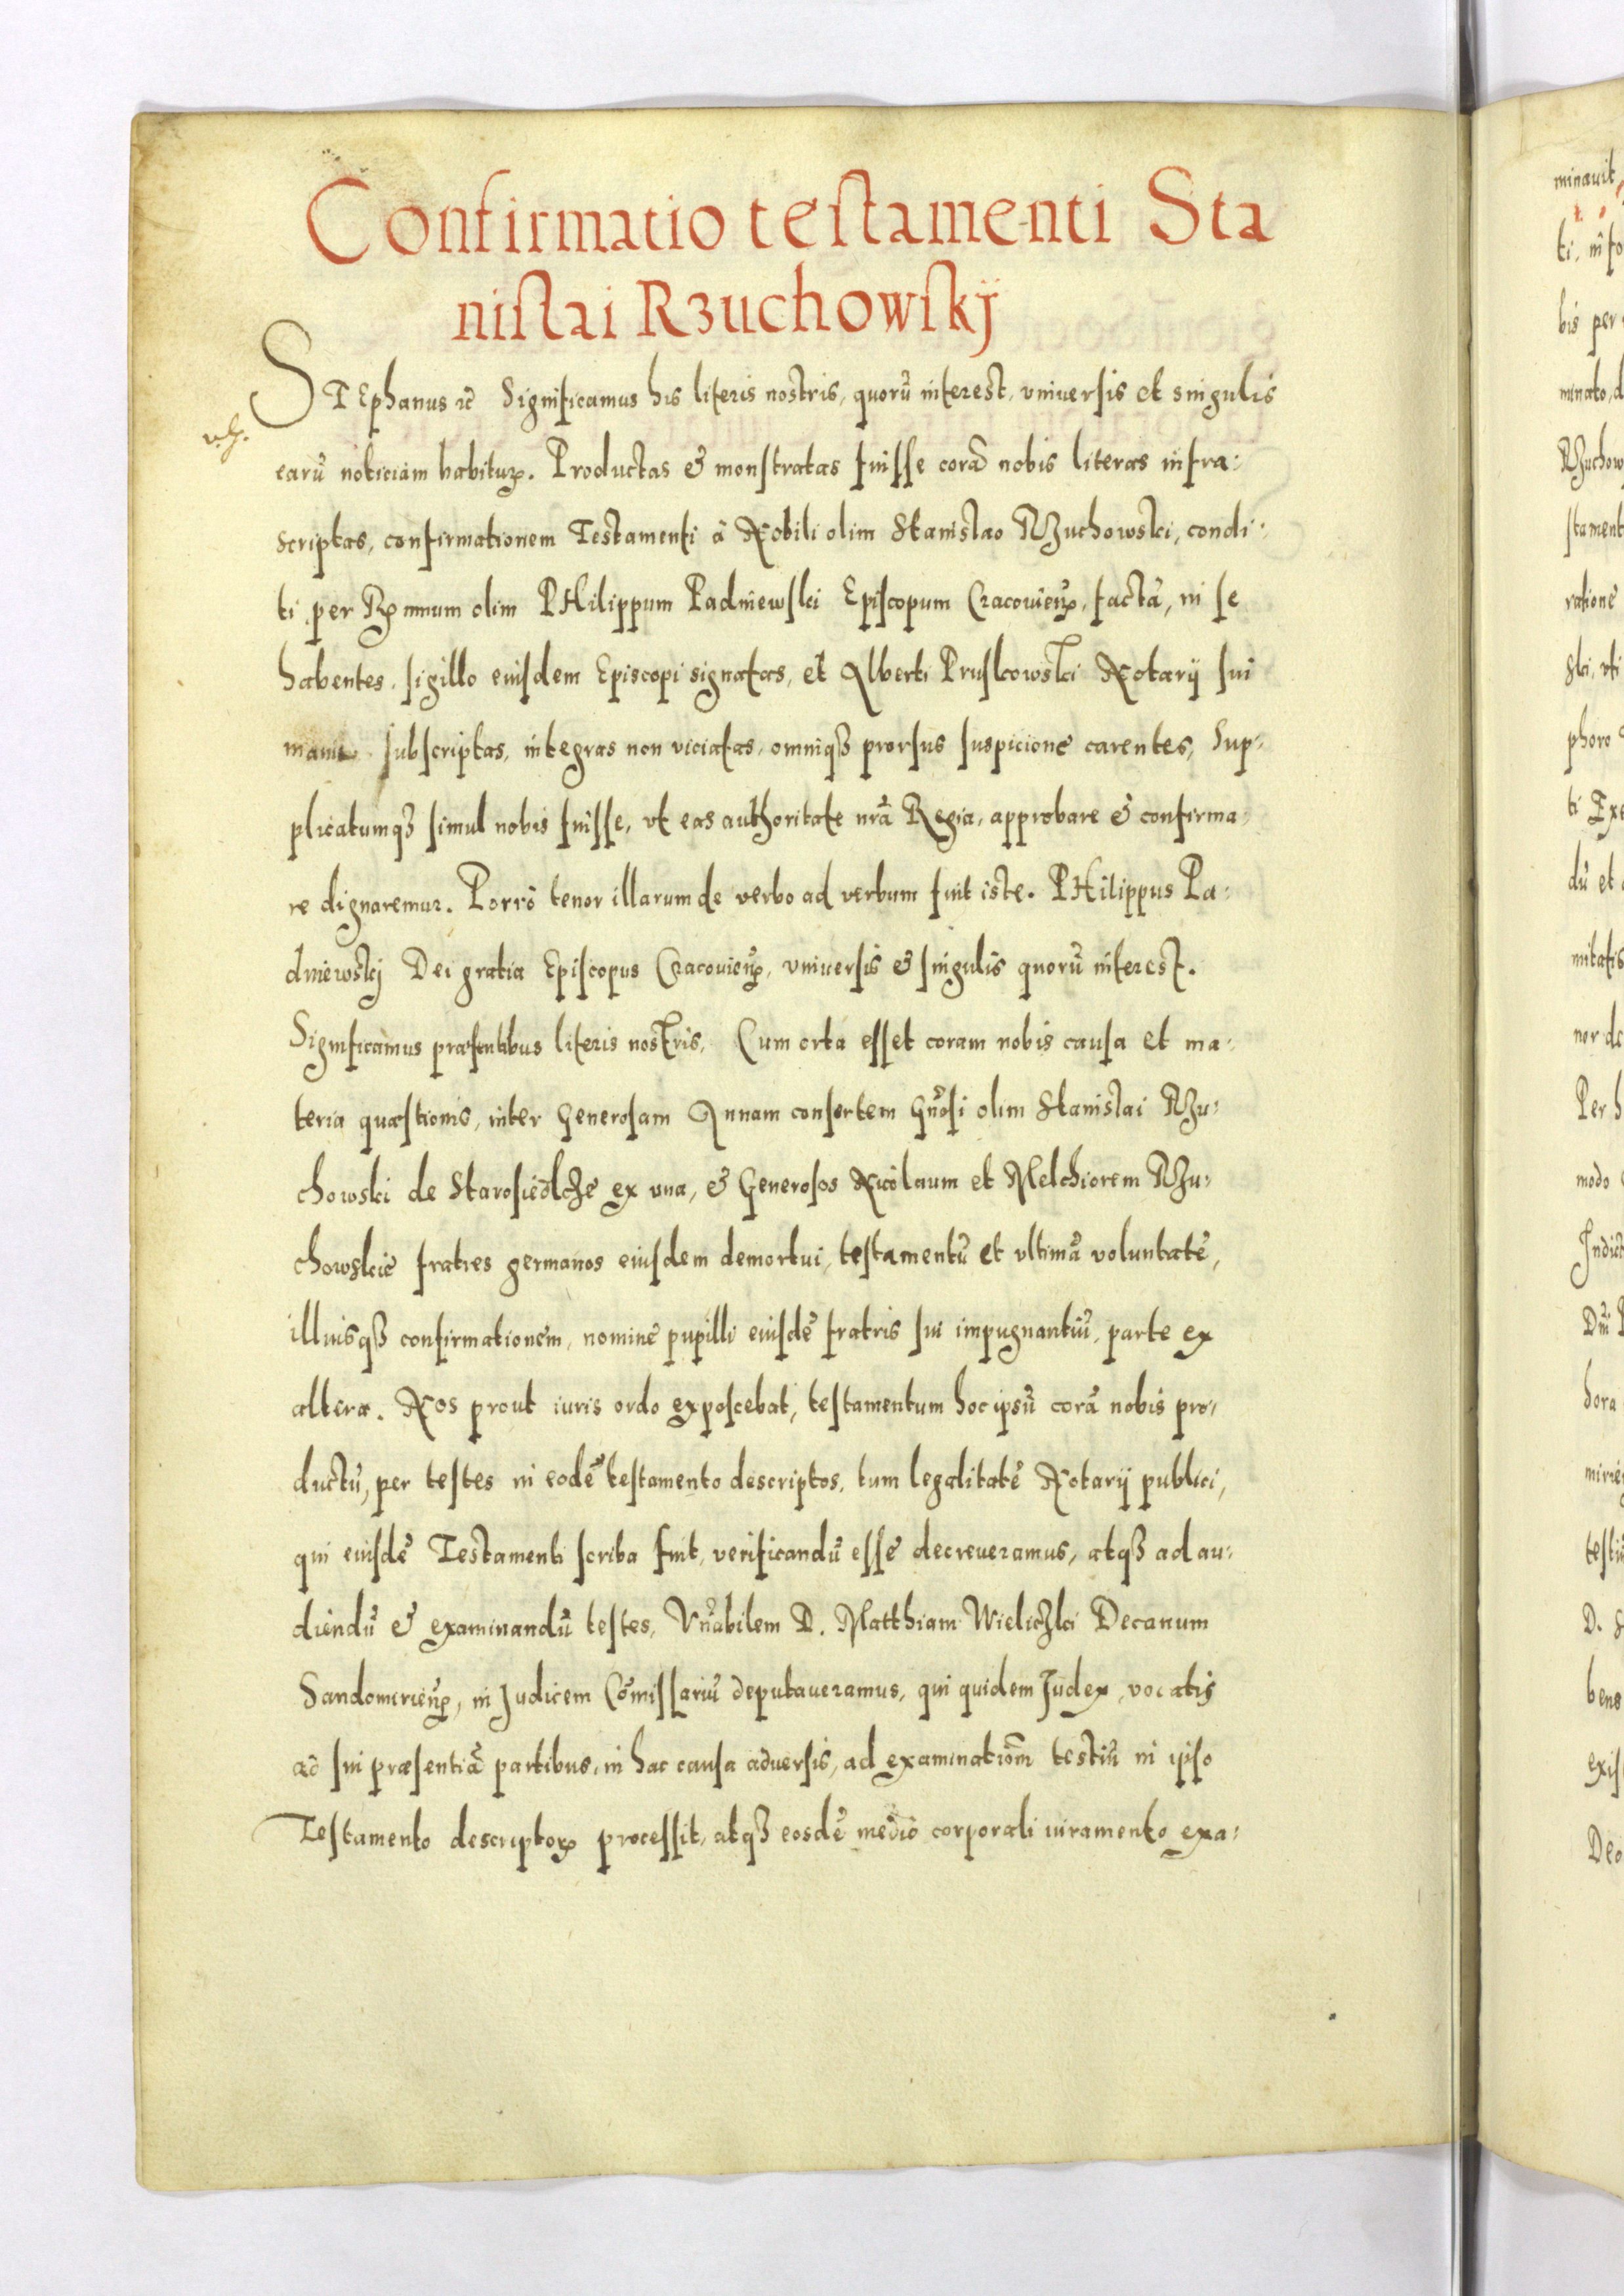 Confirmatio testamenti Sta
nislai Rzuchowskij
STEphanus etc̃ Significamus his literis nostris, quorũ interest, vniuersis et singulis
earũ noticiam habituꝝ. Productas & monstratas fuisse corã nobis literas infra:
scriptas, confirmationem Testamenti à Nobili olim Stanislao Rzuchowski, condi:
ti per Rꝝmum olim PHilippum Padniewski Episcopum Cracouieñ, factã, in se
habentes, sigillo eiusdem Episcopi signatas, et Alberti Pruskowski Notarij sui
manu subscriptas, integras non viciatas, omniqꝫ prorsus suspicione carentes, Sup:
plicatumqꝫ simul nobis fuisse, vt eas authoritate nrã Regia, approbare & confirma:
re dignaremur. Porrò tenor illarum de verbo ad verbum fuit iste. PHilippus Pa:
dniewskij Dei gratia Episcopus Cracouieñ, vniuersis & singulis quorũ interest.
Significamus præsentibus literis nostris, Cum orta esset coram nobis causa et ma:
teria quæstionis, inter Generosam Annam consortem Gnõsi olim Stanislai Rzu:
chowski de Starosiedlcze ex vna, & Generosos Nicolaum et Melchiorem Rzu:
chowskie fratres germanos eiusdem demortui, testamentũ et vltimã voluntatẽ,
illiusqꝫ confirmationem, nomine pupilli eiusdẽ fratris sui impugnantiũ, parte ex
altera. Nos prout iuris ordo exposcebat, testamentum hoc ipsũ corã nobis pro:
ductũ, per testes in eodẽ testamento descriptos, tum legalitatẽ Notarij publici,
qui eiusdẽ Testamenti scriba fuit, verificandũ esse decreueramus, atqꝫ ad au:
diendũ & examinandũ testes, Vñabilem D. Matthiam Wieliczki Decanum
Sandomirieñ, in Judicem Cõmissariũ deputaueramus, qui quidem Judex, vocatis
ad sui præsentiã partibus, in hac causa aduersis, ad examinatiom̃ testiũ in ipso
Testamento descriptoꝝ processit, atqꝫ eosdẽ medio corporali iuramento exa: